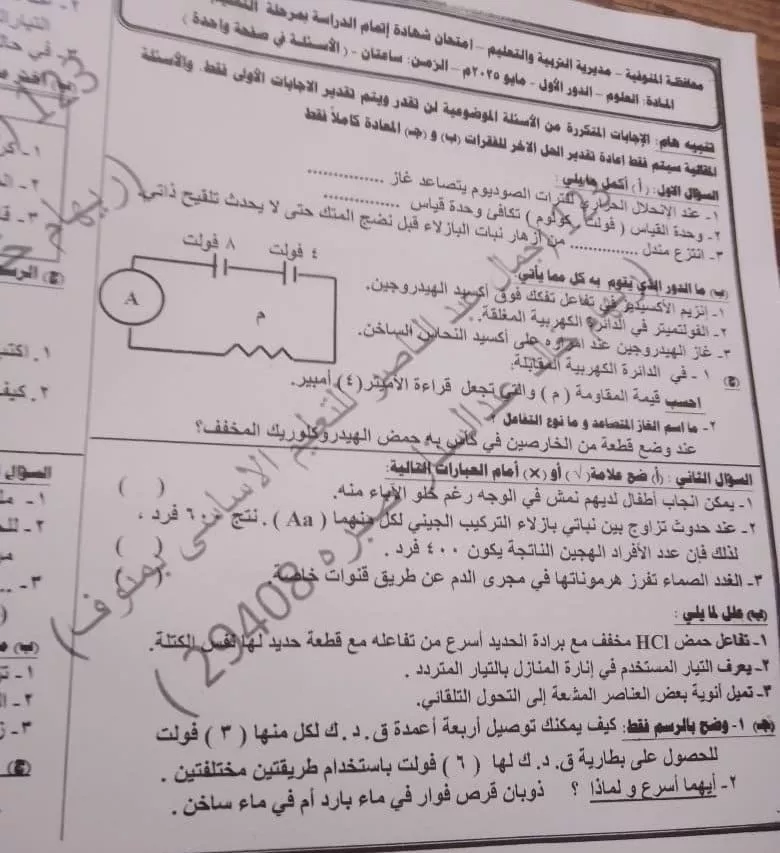 محافظة المنوفية - مديرية التربية والتعليم - امتحان شهادة إتمام الدراسة بمرحلة التعليم
المادة: العلوم - الدور الأول - مايو ٢٠٢٥م - الزمن: ساعتان - (الأسئلة في صفحة واحدة)
تنبيه هام: الإجابات المتكررة من الأسئلة الموضوعية لن تقدر ويتم تقدير الاجابات الأولى فقط. والأسئلة
المقالية سيتم فقط اعادة تقدير الحل الاخر للفقرات (ب) و (جـ) المعادة كاملاً فقط
السؤال الاول: (أ) أكمل ما يلي:
١- عند الانحلال الحراري لنترات الصوديوم يتصاعد غاز ..............
٢- وحدة القياس ( فولت . كولوم ) تكافئ وحدة قياس ..............
٣- انتزع مندل .............. من أزهار نبات البازلاء قبل نضج المتك حتى لا يحدث تلقيح ذاتي
(ب) ما الدور الذي يقوم به كل مما يأتي:
١- إنزيم الأكسيديز في تفاعل تفكك فوق أكسيد الهيدروجين.
٢- الفولتميتر في الدائرة الكهربية المغلقة.
٣- غاز الهيدروجين عند امراره على أكسيد النحاس الساخن.
(ج) ١- في الدائرة الكهربية المقابلة:
احسب قيمة المقاومة (م) والتي تجعل قراءة الأميتر (٤) أمبير.
٢- ما اسم الغاز المتصاعد و ما نوع التفاعل ؟
عند وضع قطعة من الخارصين في كأس به حمض الهيدروكلوريك المخفف؟
٨ فولت
٤ فولت
A
م
السؤال الثاني: (أ) ضع علامة (√) أو (×) أمام العبارات التالية:
١- يمكن انجاب أطفال لديهم نمش في الوجه رغم خلو الآباء منه. ( )
٢- عند حدوث تزاوج بين نباتي بازلاء التركيب الجيني لكل منهما (Aa). نتج ٦٠٠ فرد ،
لذلك فإن عدد الأفراد الهجين الناتجة يكون ٤٠٠ فرد . ( )
٣- الغدد الصماء تفرز هرموناتها في مجرى الدم عن طريق قنوات خاصة. ( )
(ب) علل لما يلي :
١- تفاعل حمض HCl مخفف مع برادة الحديد أسرع من تفاعله مع قطعة حديد لها نفس الكتلة.
٢- يعرف التيار المستخدم في إنارة المنازل بالتيار المتردد .
٣- تميل أنوية بعض العناصر المشعة إلى التحول التلقائي.
(جـ) ١- وضح بالرسم فقط: كيف يمكنك توصيل أربعة أعمدة ق. د. ك لكل منها (٣) فولت
للحصول على بطارية ق. د. ك لها (٦) فولت باستخدام طريقتين مختلفتين .
٢- أيهما أسرع و لماذا ؟ ذوبان قرص فوار في ماء بارد أم في ماء ساخن .
(29408